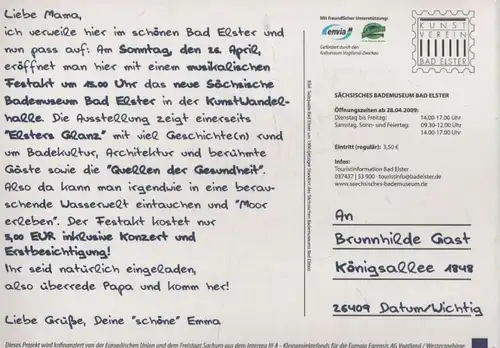 Liebe Mama,
ich verweile hier im schönen Bad Elster und
nun pass auf: Am Sonntag, den 26. April,
eröffnet man hier mit einem musikalischen
Festakt um 15.00 Uhr das neue Sächsische
Bademuseum Bad Elster in der KunstWandel-
halle. Die Ausstellung zeigt einerseits
"Elsters Glanz" mit viel Geschichte(n) rund
um Badekultur, Architektur und berühmte
Gäste sowie die "Quellen der Gesundheit".
Also da kann man irgendwie in eine berau-
schende Wasserwelt eintauchen und "Moor
erleben". Der Festakt kostet nur
5,00 EUR inklusive Konzert und
Erstbesichtigung!
Ihr seid natürlich eingeladen,
also überrede Papa und komm her!
Liebe Grüße, Deine "schöne" Emma
Mit freundlicher Unterstützung:
envia M
Gefördert durch den
Kulturraum Vogtland-Zwickau
KUNST
VEREIN
BAD ELSTER
SÄCHSISCHES BADEMUSEUM BAD ELSTER
Öffnungszeiten ab 28.04.2009:
Dienstag bis Freitag: 14.00-17.00 Uhr
Samstag, Sonn- und Feiertag: 09.30-12.00 Uhr
14.00-17.00 Uhr
Eintritt (regulär): 3,50 €
Infos:
Touristinformation Bad Elster
037437 | 33 900 · touristinfo@badelster.de
www.saechsisches-bademuseum.de
An
Brunnhilde Gast
Königsallee 1848
26409 Datum/Wichtig
Dieses Projekt wird kofinanziert von der Europäischen Union und dem Freistaat Sachsen aus dem Interreg III A - Kleinprojektefonds für die Euregio Egrensis AG Vogtland / Westerzgebirge.